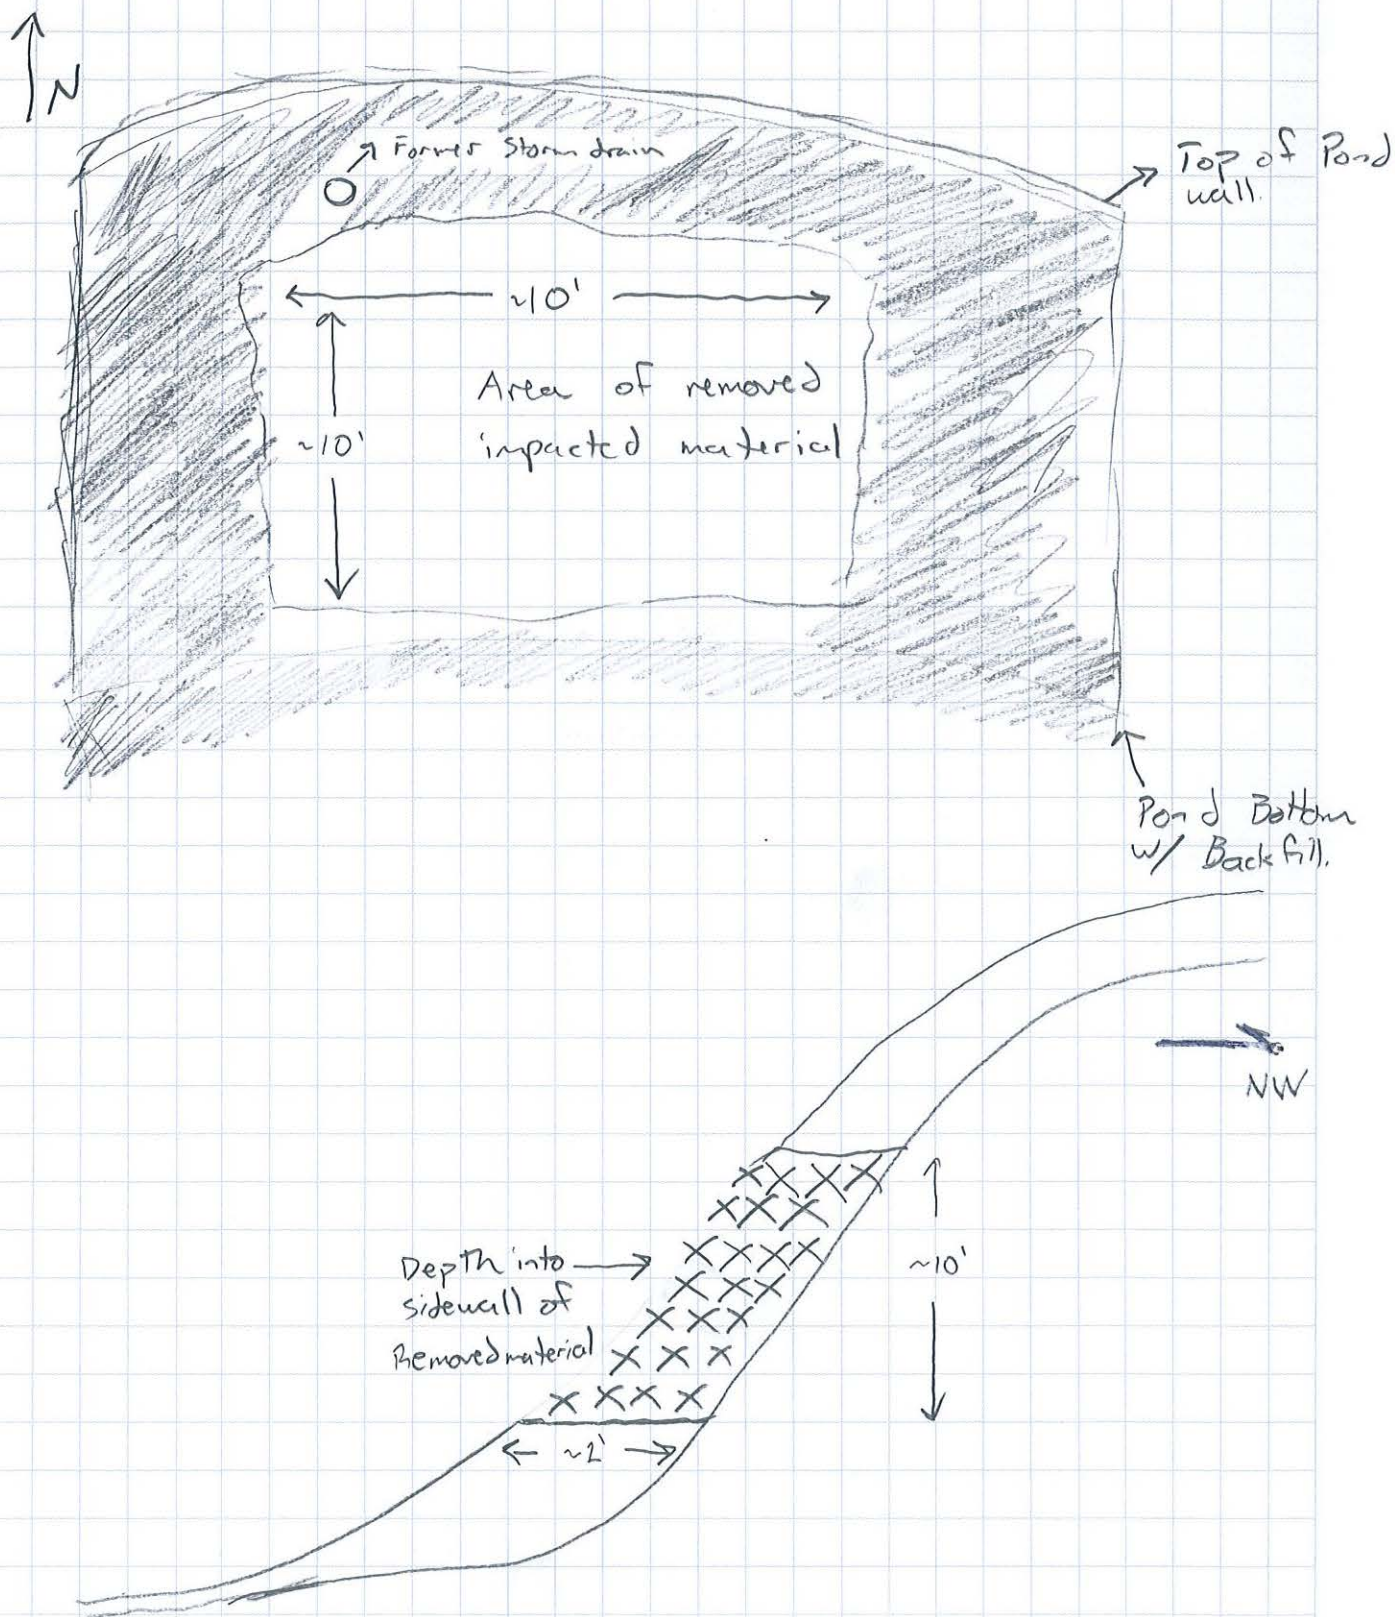 N
Former Storm drain
Top of Pond
wall.
~10'
~10'
Area of removed
impacted material
Pond Bottom
w/ Backfill.
NW
Depth into
sidewall of
Removed material
~10'
~2'